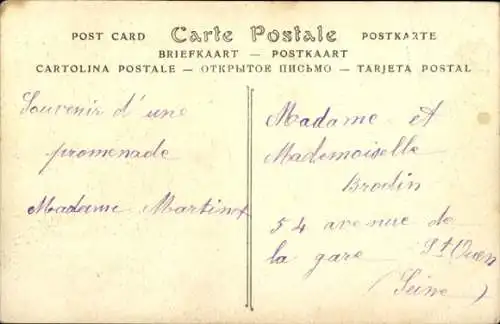 POST CARD Carte Postale POSTKARTE
BRIEFKAART — POSTKAART
CARTOLINA POSTALE — ОТКРЫТОЕ ПИСЬМО — TARJETA POSTAL
Souvenir d'une
promenade
Madame Martinot
Madame et
Mademoiselle
Brodin
54 avenue de
la gare St Ouen
(Seine)